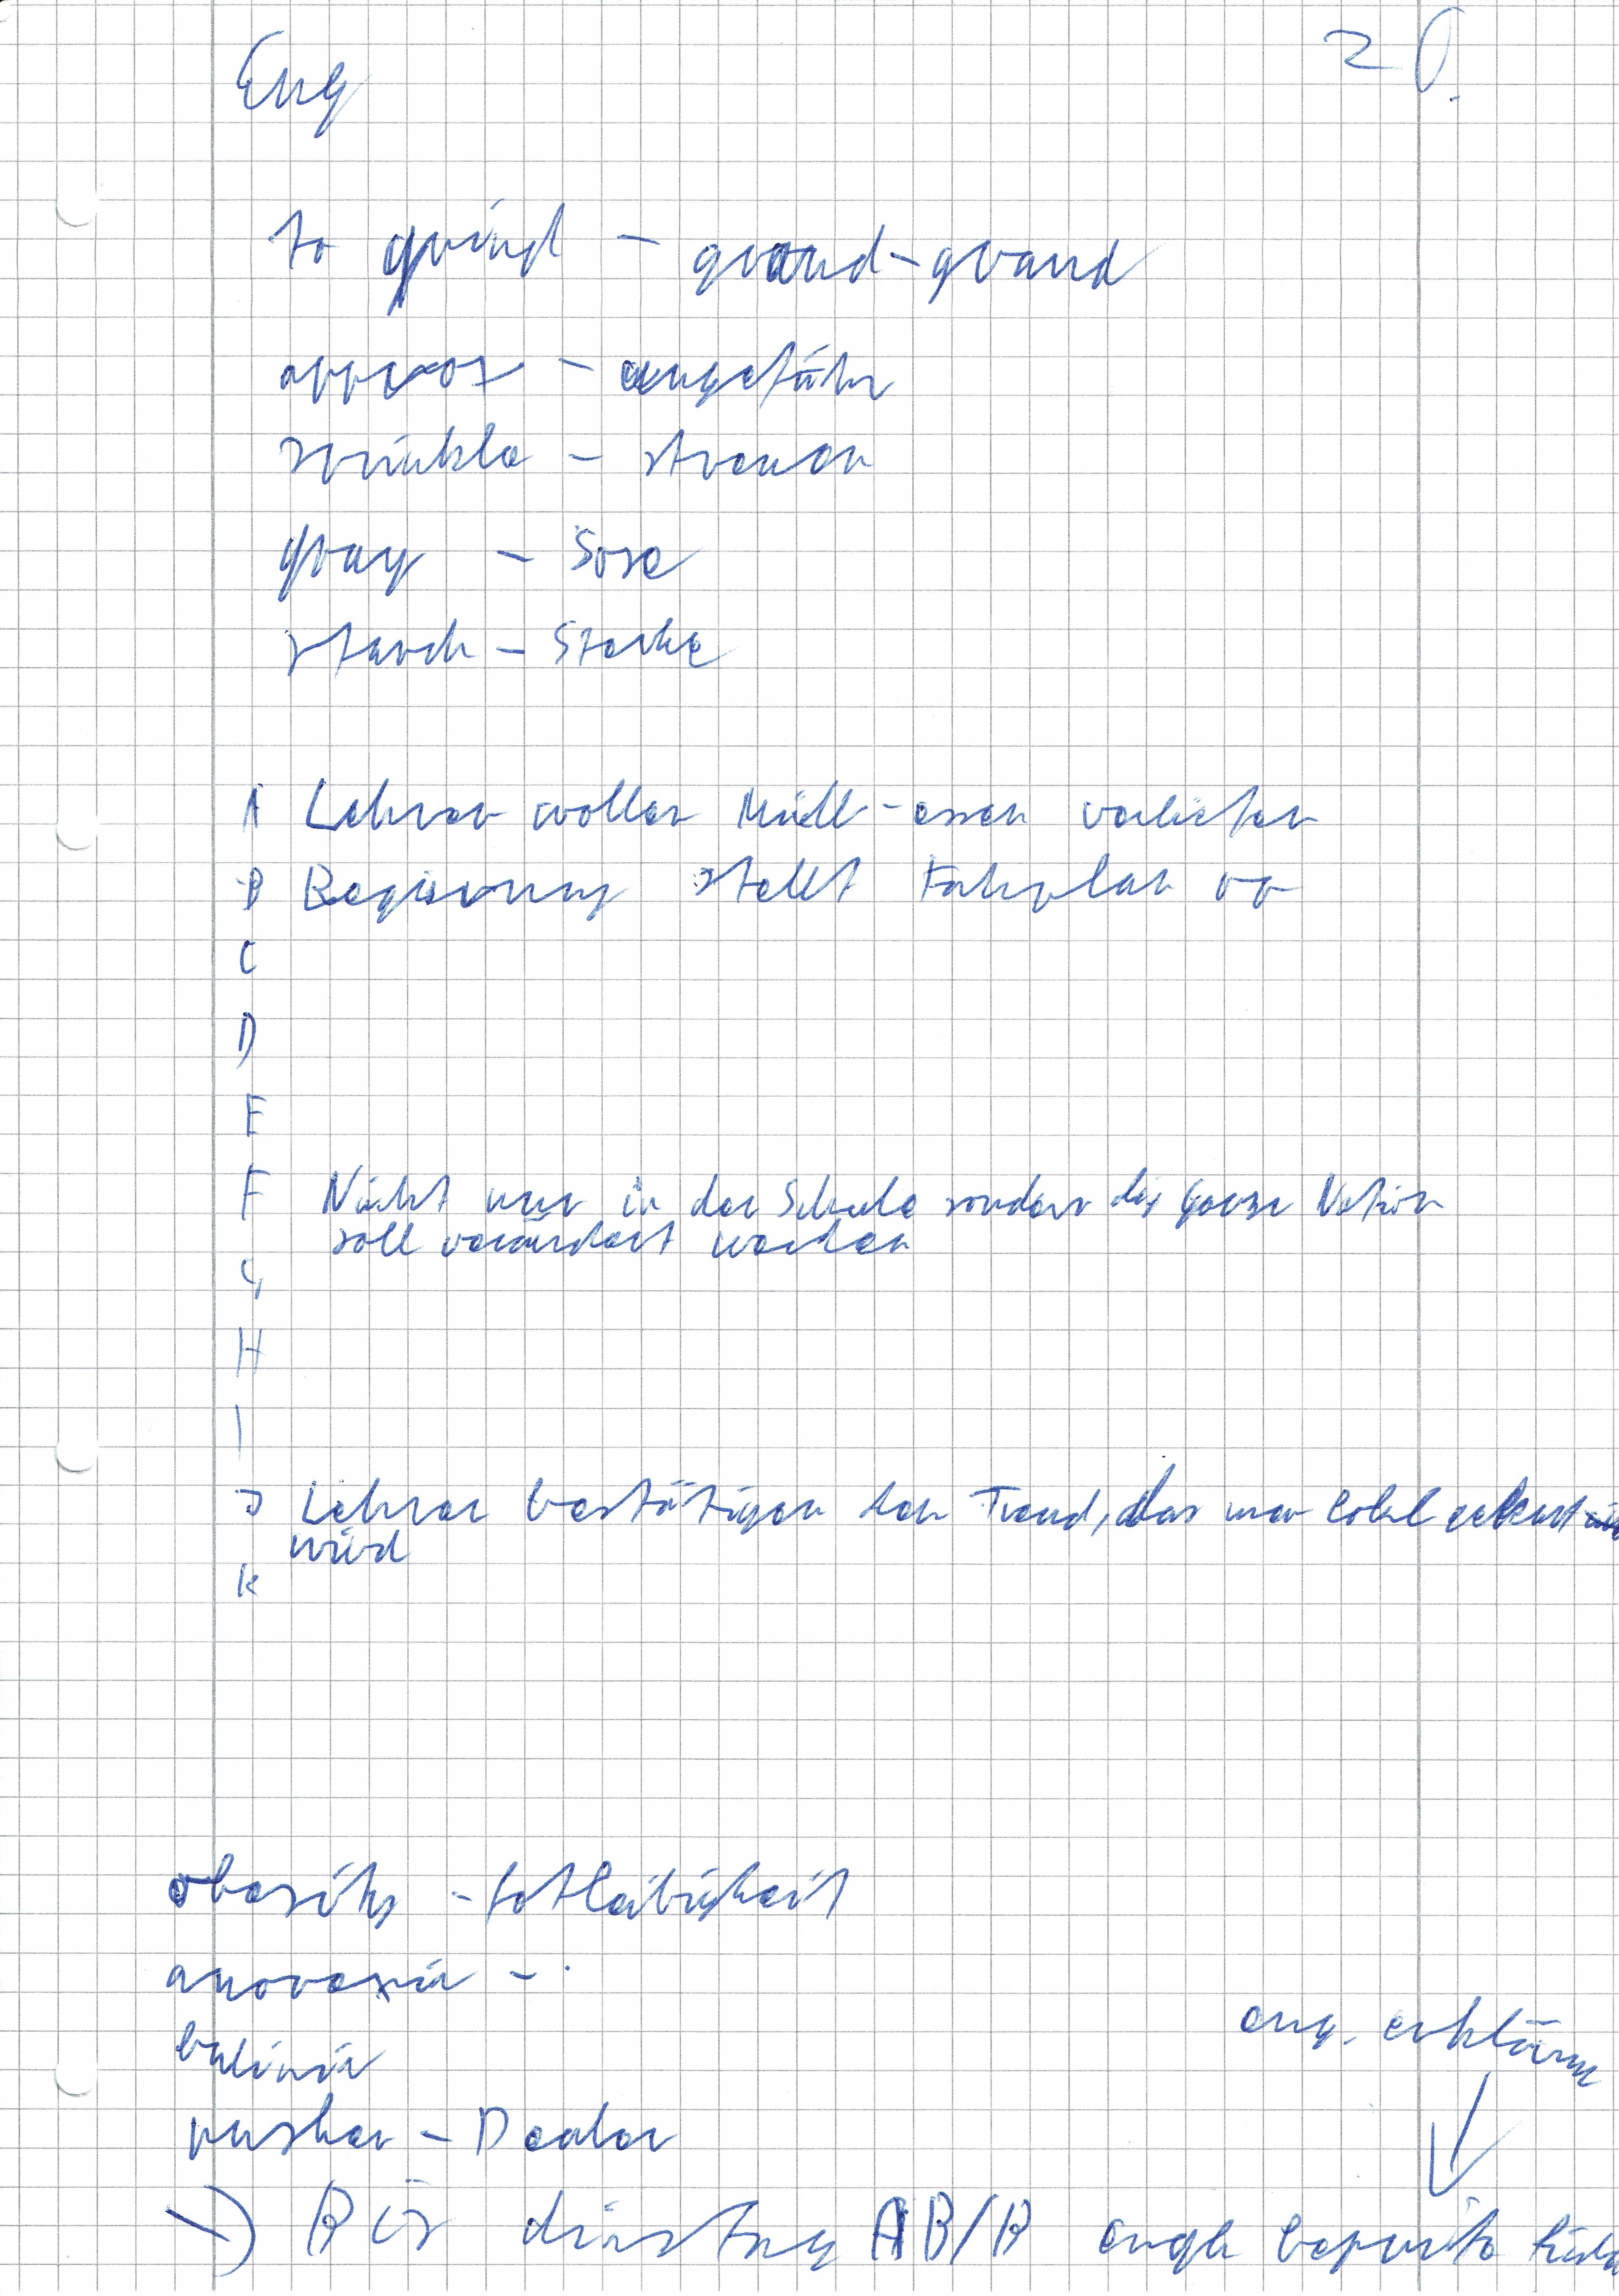 Eng 20.
to grind - grand - grand
approx - ungefähr
sprinkle - streuen
gray - Sose
starch - Stärke
A Lehrer wollen Müll-essen verbieten
B Regierung stellt Fahrplan vor
C
D
E
F Nicht nur in der Schule sondern die ganze Nation
soll verändert werden
G
H
I
J Lehrer bestätigen den Trend, das mer
wird
K
obesity - fettleibigkeit
anorexia -
bulimia
eng. erklären
pusher - Dealer
→ Bis dienstag AB/B engl